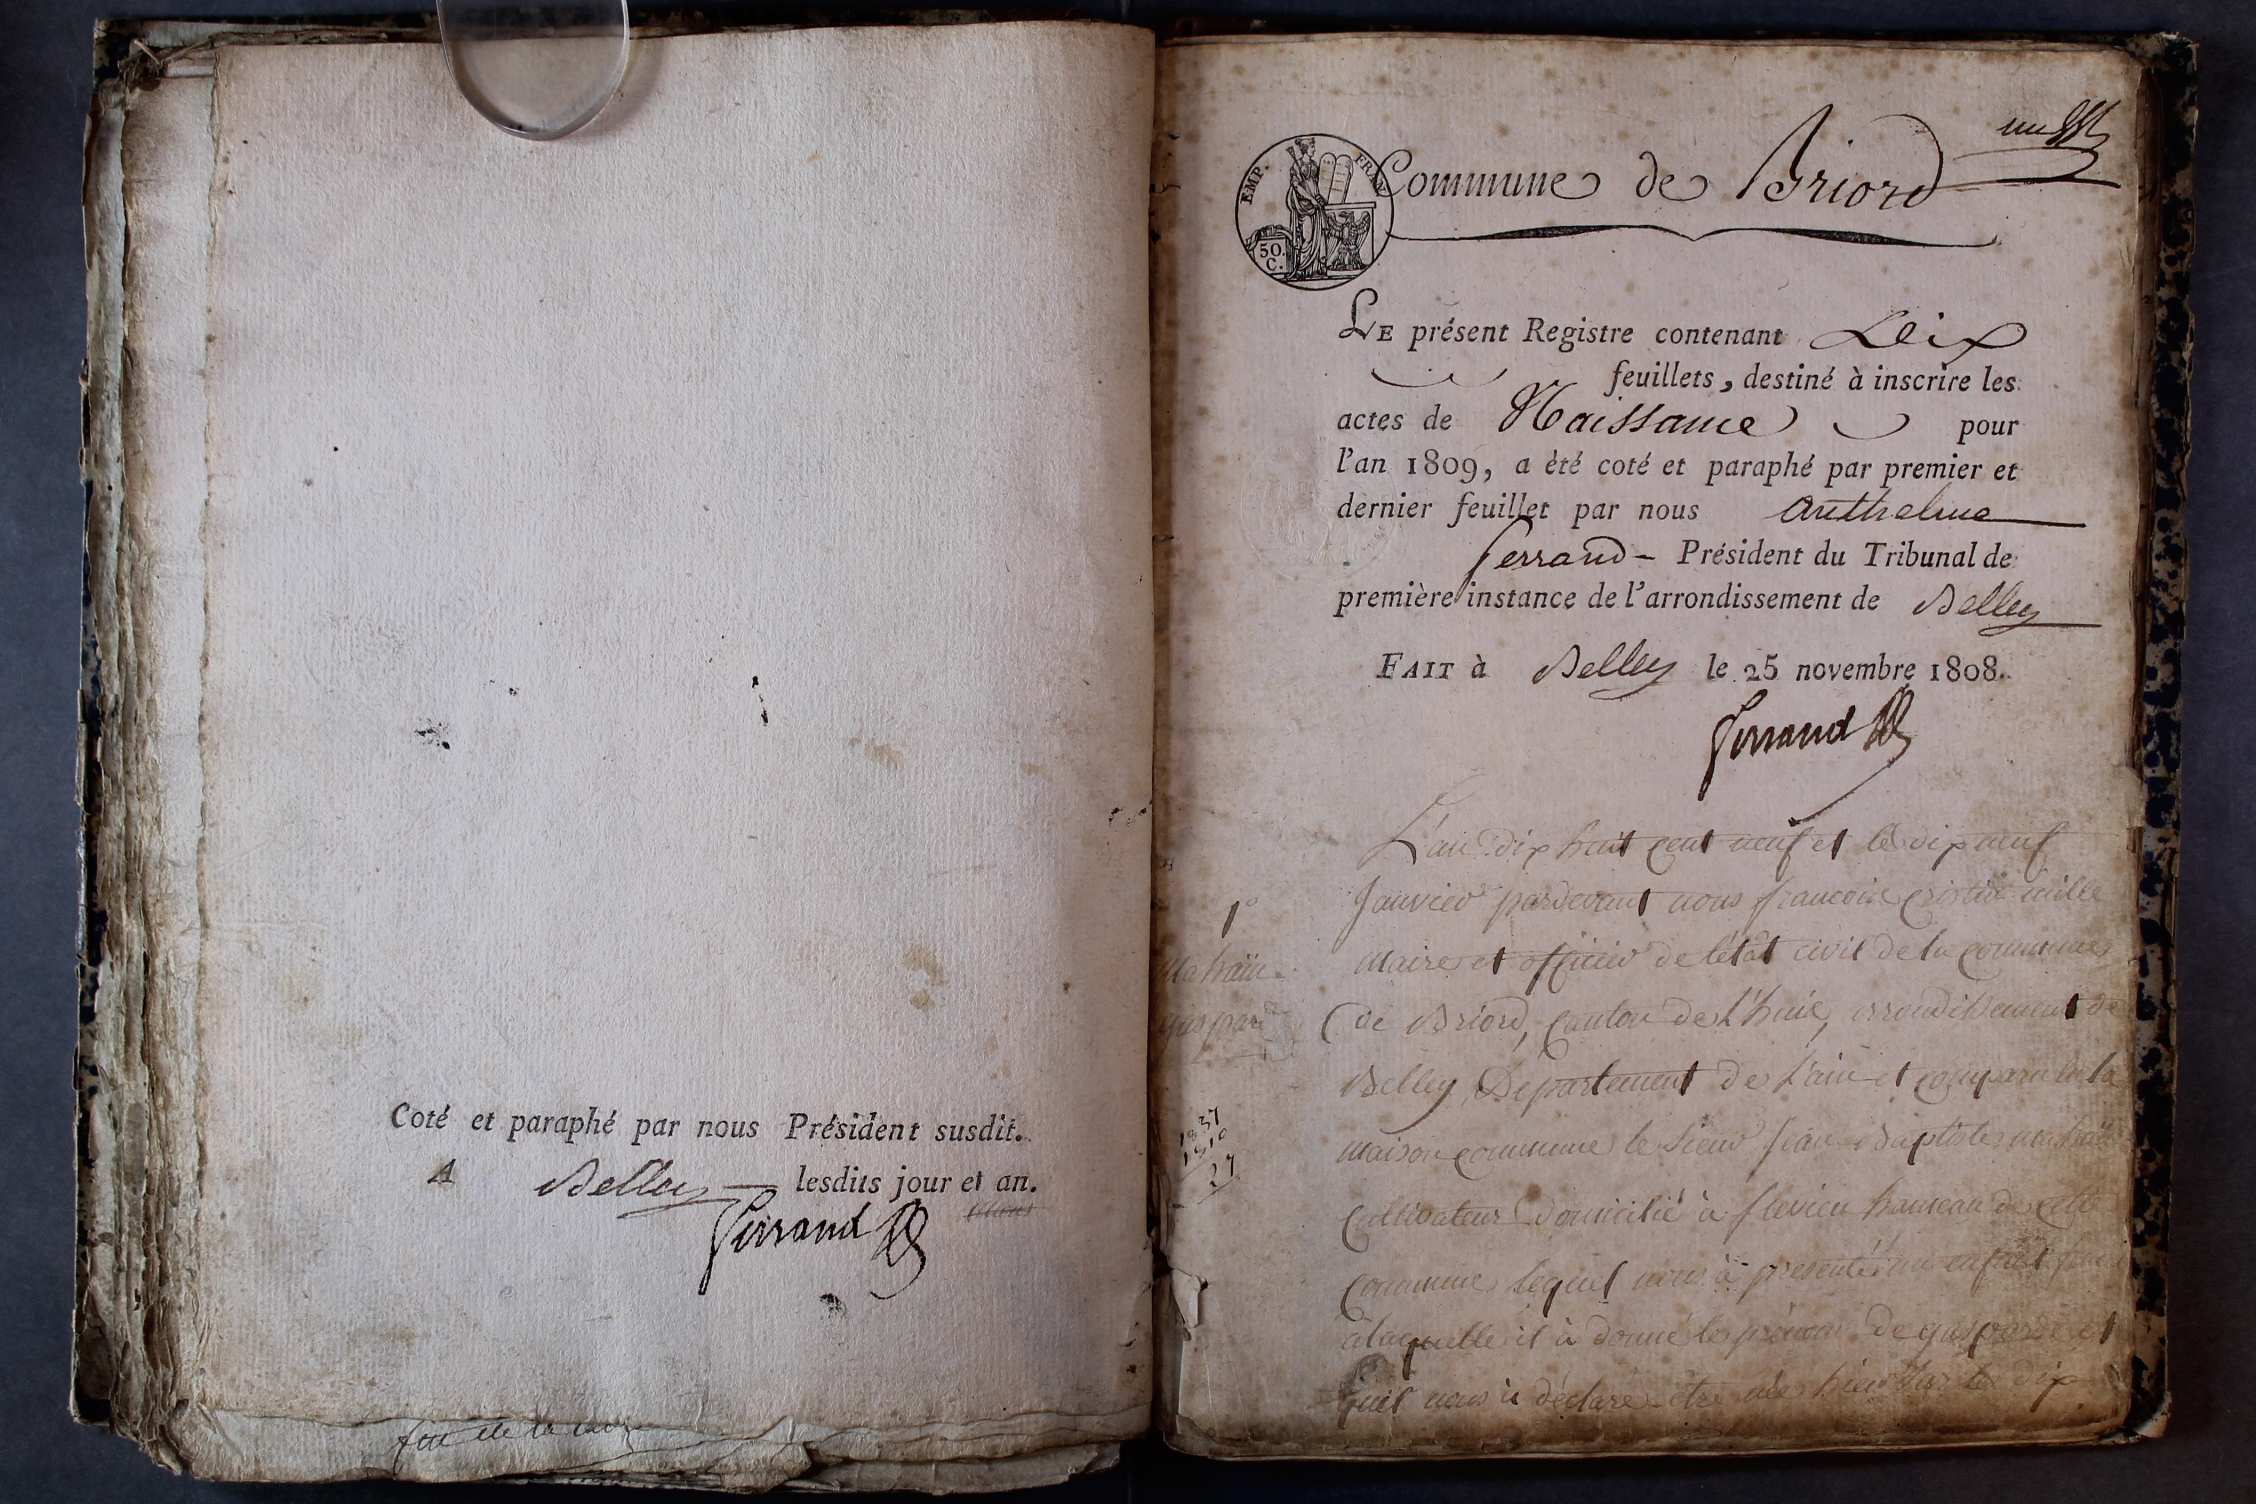 Coté et paraphé par nous Président susdit.
A Belley lesdits jour et an.
Ferrand
un
EMP. FRAN.
50.
C.
Commune de Briord
LE présent Registre contenant Dix
feuillets, destiné à inscrire les
actes de Naissance pour
l'an 1809, a été coté et paraphé par premier et
dernier feuillet par nous Anthelme
Ferrand - Président du Tribunal de
première instance de l'arrondissement de Belley
FAIT à Belley le 25 novembre 1808.
Ferrand
L'an dix huit cent neuf et le dix neuf
Janvier pardevant nous francois mille
1°
maire et officier de l'état civil de la commune
de Briord, canton de l'huis, arrondissement de
gaspard
Belley, Département de l'ain et comparu en la
1837
1810
27
maison commune le sieur jean Baptiste
Cultivateur domicilié à flevieu hameau de cette
Commune lequel nous à presenté un enfant
alaquelle il à donné le prénom de gasparde et
quil nous à déclaré être née hier le dix